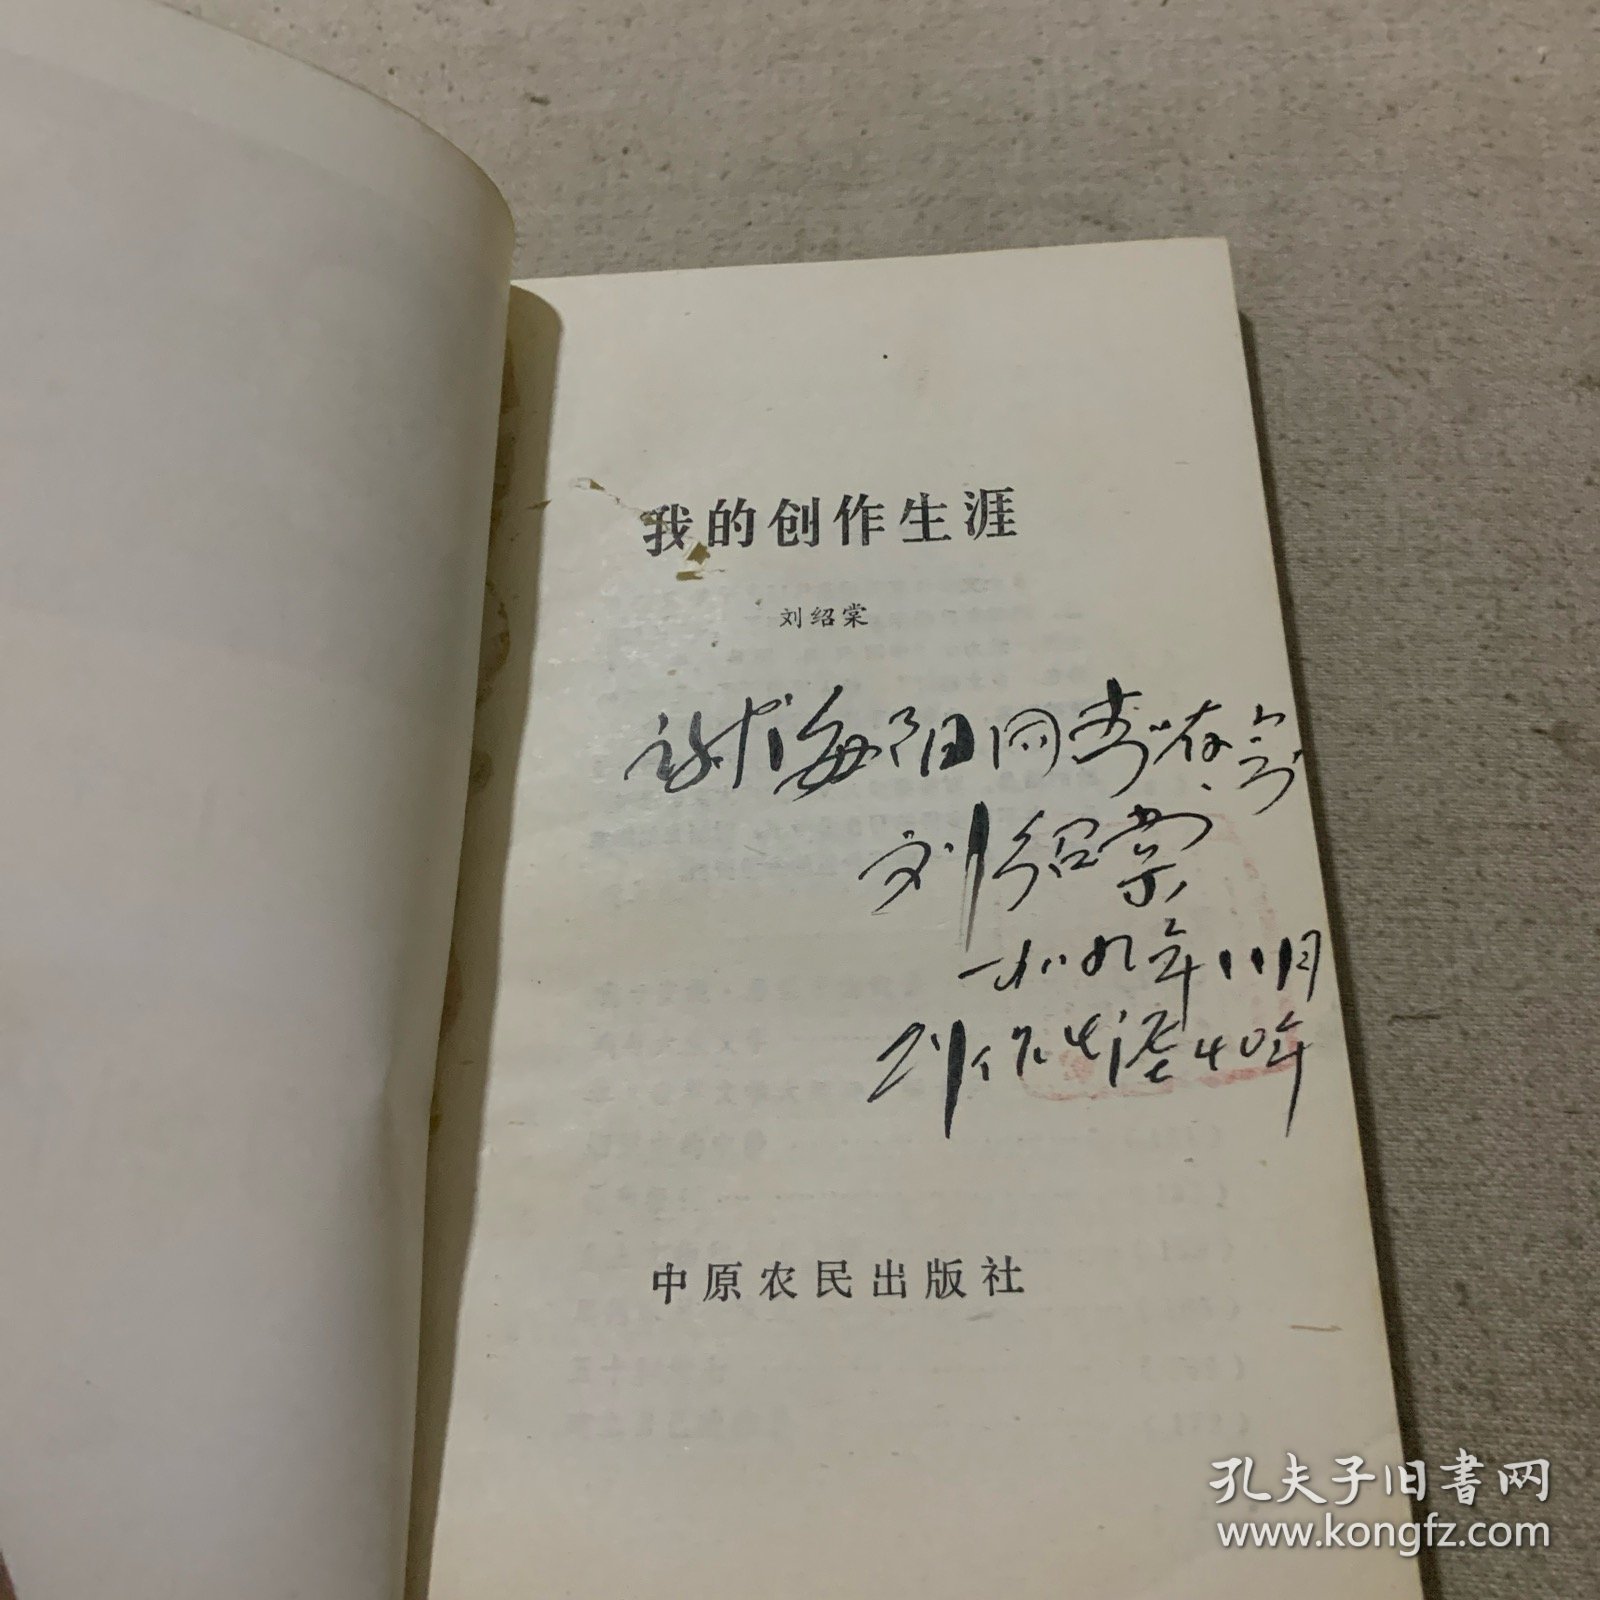 我的创作生涯
刘绍棠
海阳同志存念
刘绍棠
一九八九年八月
创作生涯40年
中原农民出版社
孔夫子旧书网
www.kongfz.com